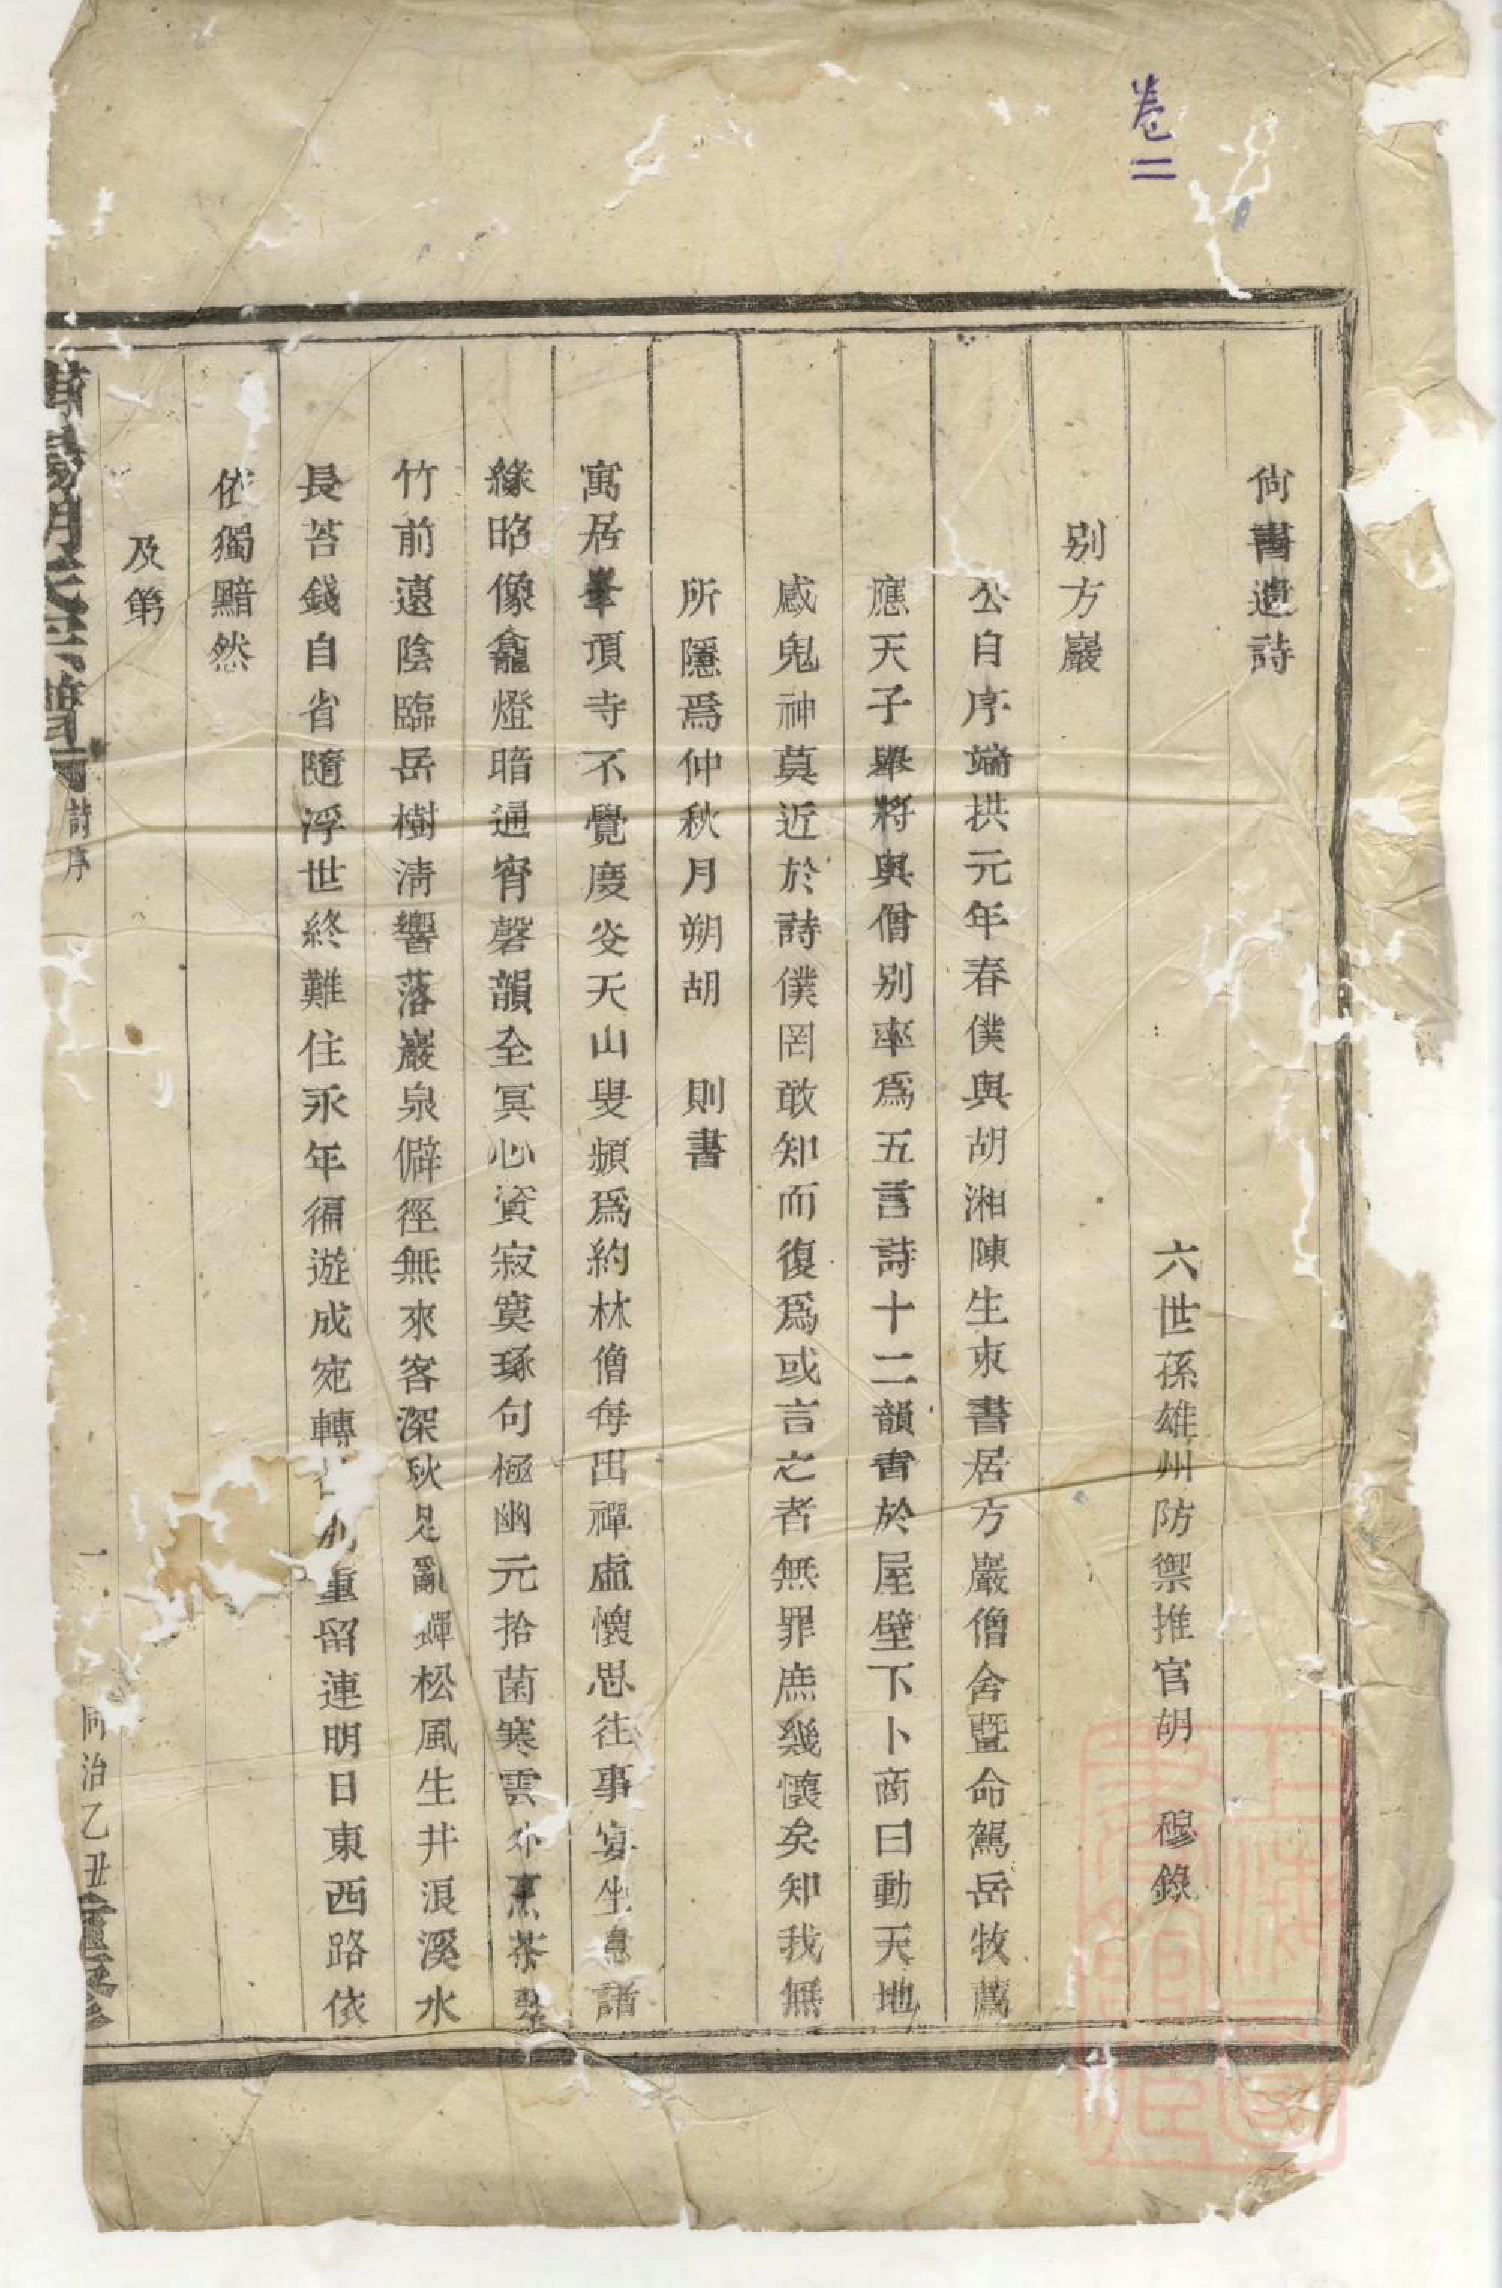 卷二
尙書遺詩
六世孫雄州防禦推官胡 穆錄
別方巖
公自序端拱元年春僕與胡湘陳生束書居方巖僧舍曁命駕岳牧薦
應天子舉將與僧別率爲五言詩十二韻書於屋壁下卜商曰動天地
感鬼神莫近於詩僕罔敢知而復爲或言之者無罪庶幾懷矣知我無
所隱爲仲秋月朔胡 則書
寓居峯頂寺不覺度炎天山叟頻爲約林僧每出禪虛懷思往事宴坐息諸
緣照像龕燈暗通宵磬韻全冥心資寂寞琢句極幽元拾菌寒雲外烹茶翠
竹前遠陰臨岳樹淸響落巖泉僻徑無來客深秋足亂蟬松風生井浪溪水
長苔錢自省隨浮世終難住永年徧遊成宛轉 重留連明日東西路依
依獨黯然
及第
詩序
一
同治乙丑重修